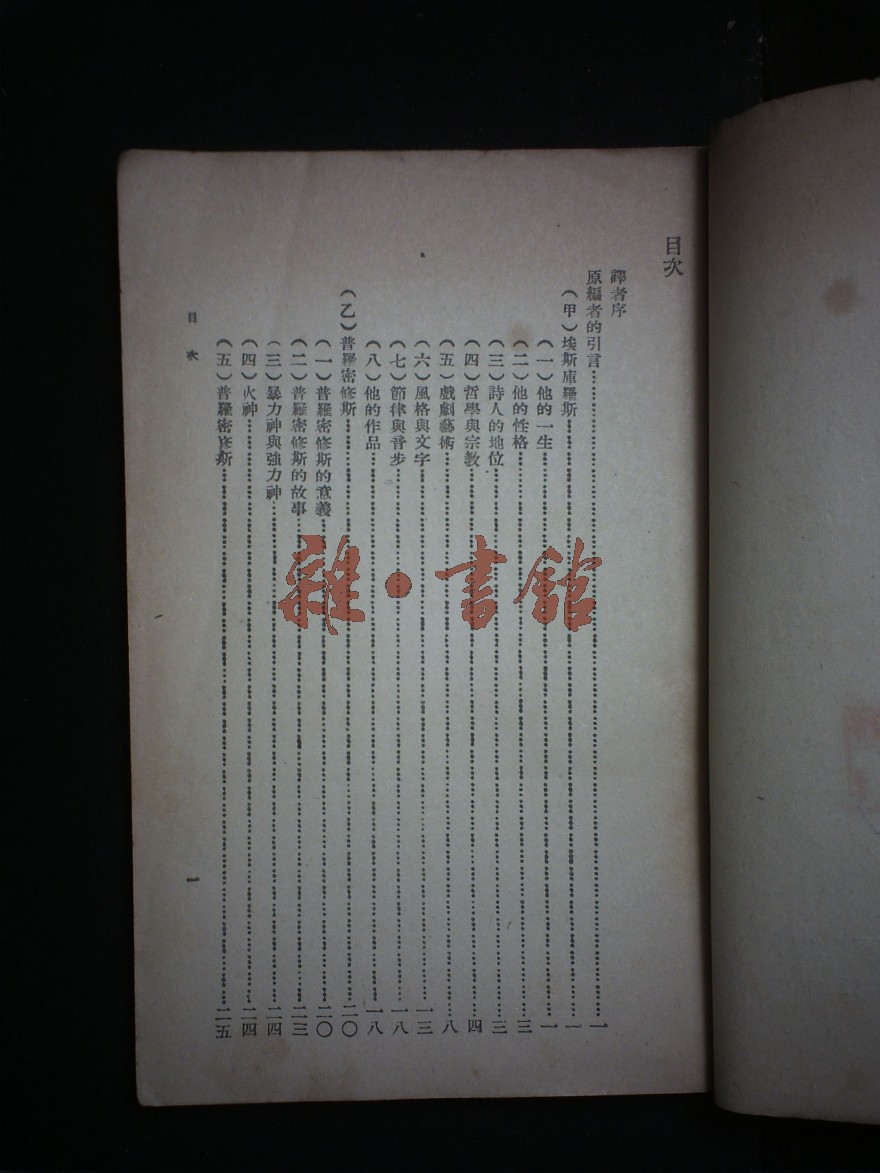 目次
譯者序
原編者的引言……一
（甲）埃斯庫羅斯……一
（一）他的一生……一
（二）他的性格……三
（三）詩人的地位……三
（四）哲學與宗教……四
（五）戲劇藝術……八
（六）風格與文字……一三
（七）節律與音步……一八
（八）他的作品……一八
（乙）普羅密修斯……二〇
（一）普羅密修斯的意義……二〇
（二）普羅密修斯的故事……二三
（三）暴力神與強力神……二四
（四）火神……二四
（五）普羅密修斯……二五
目次
一
雜·書館